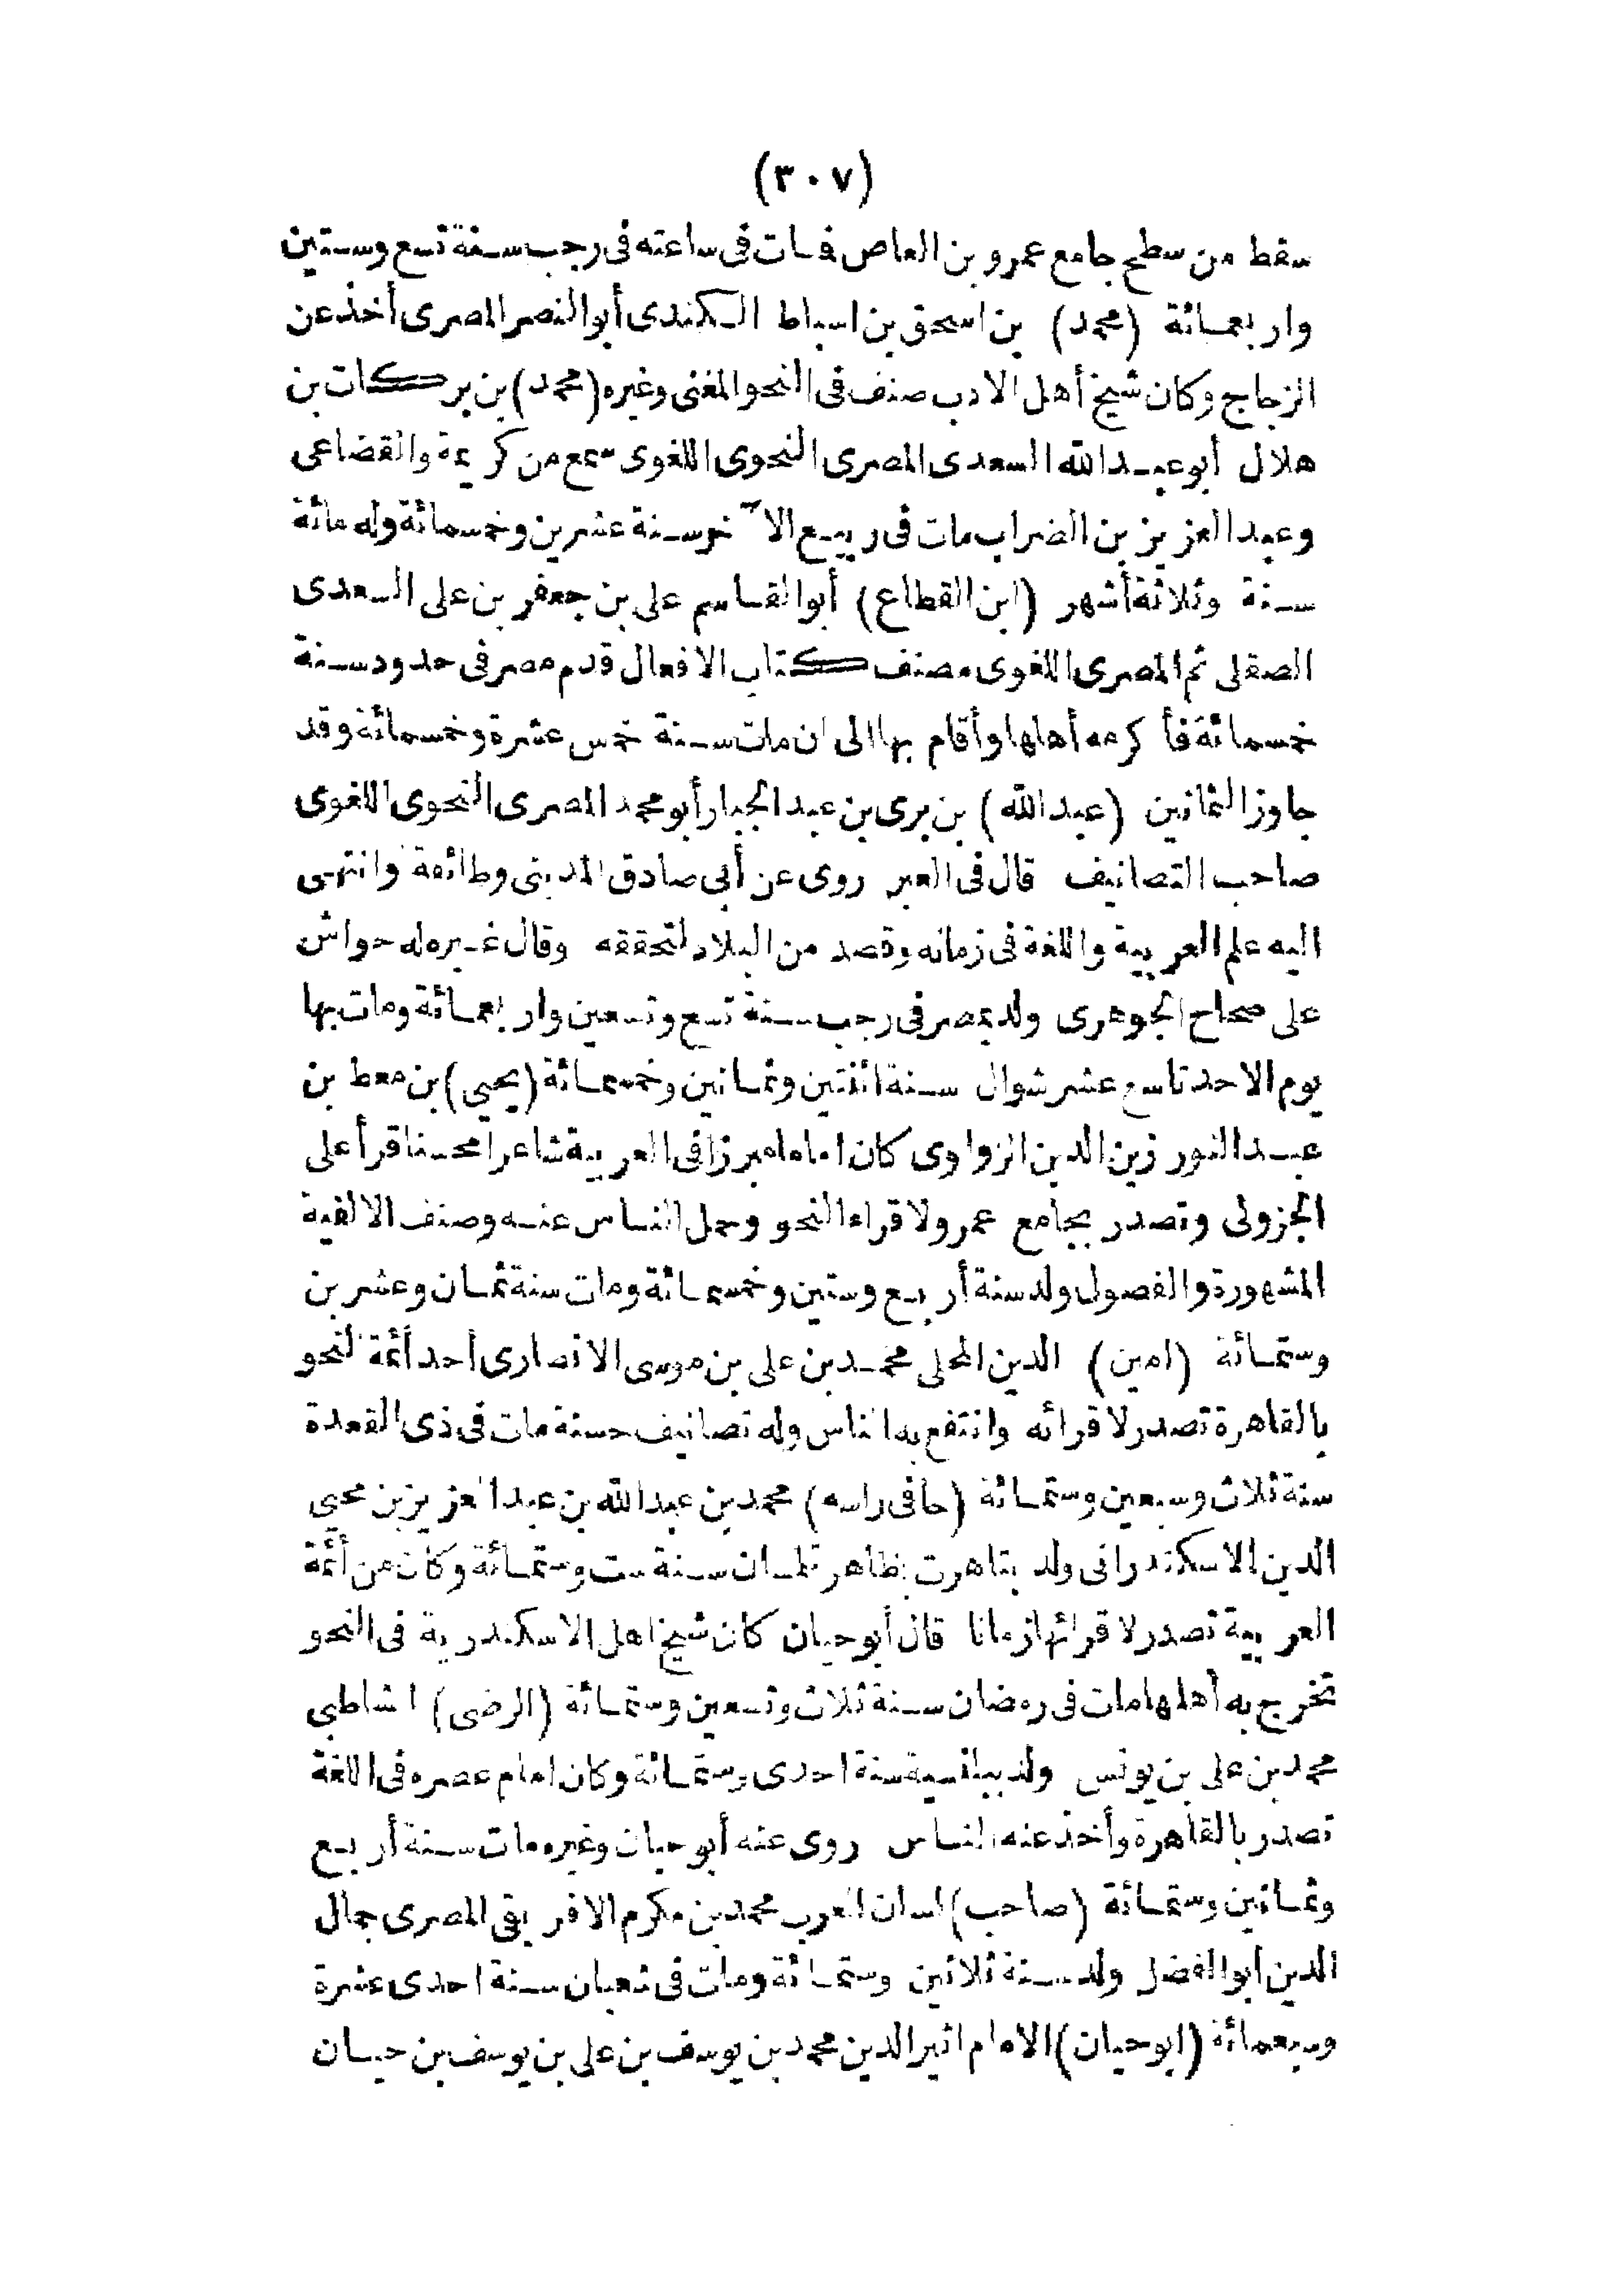 (٣٠٧)
سقط من سطح جامع عمرو بن العاص فمات فى ساعته فى رجب سنة تسع وستين
واربعمائة (محمد) بن اسحق بن اسباط الكندى أبو النصر المصرى أخذ عن
الزجاج وكان شيخ أهل الادب صنف فى النحو المغنى وغيره (محمد) بن بركات بن
هلال أبو عبد الله السعدى المصرى النحوى اللغوى سمع من كريمة والقضاعى
وعبد العزيز بن الضراب مات فى ربيع الآخر سنة عشرين وخمسمائة وله مائة
سنة وثلاثة أشهر (ابن القطاع) أبو القاسم على بن جعفر بن على السعدى
الصقلى ثم المصرى اللغوى مصنف كتاب الافعال قدم مصر فى حدود سنة
خمسمائة فأكرمه أهلها وأقام بها الى ان مات سنة خمس عشرة وخمسمائة وقد
جاوز الثمانين (عبد الله) بن برى بن عبد الجبار أبو محمد المصرى النحوى اللغوى
صاحب التصانيف قال فى العبر روى عن أبى صادق المدينى وطائفة وانتهى
اليه علم العربية واللغة فى زمانه وقصد من البلاد لتحققه وقال غيره له حواش
على صحاح الجوهرى ولد بمصر فى رجب سنة تسع وتسعين واربعمائة ومات بها
يوم الاحد تاسع عشر شوال سنة اثنتين وثمانين وخمسمائة (يحيى) بن معط بن
عبد النور زين الدين الزواوى كان اماما مبرزا فى العربية شاعرا محسنا قرأ على
الجزولى وتصدر بجامع عمرو لاقراء النحو وحمل الناس عنه وصنف الالفية
المشهورة والفصول ولد سنة أربع وستين وخمسمائة ومات سنة ثمان وعشرين
وستمائة (امين) الدين المحلى محمد بن على بن موسى الانصارى أحد أئمة النحو
بالقاهرة تصدر لاقرائه وانتفع به الناس وله تصانيف حسنة مات فى ذى القعدة
سنة ثلاث وسبعين وستمائة (حافى راسه) محمد بن عبد الله بن عبد العزيز بن محيى
الدين الاسكندرانى ولد بتاهرت بظاهر تلمسان سنة ست وستمائة وكان من أئمة
العربية تصدر لاقرائها زمانا قال أبو حيان كان شيخ اهل الاسكندرية فى النحو
تخرج به أهلها مات فى رمضان سنة ثلاث وتسعين وستمائة (الرضى) الشاطبى
محمد بن على بن يونس ولد ببلنسية سنة احدى وستمائة وكان امام عصره فى اللغة
تصدر بالقاهرة وأخذ عنه الناس روى عنه أبو حيان وغيره مات سنة أربع
وثمانين وستمائة (صاحب) لسان العرب محمد بن مكرم الافريقى المصرى جمال
الدين ابو الفضل ولد سنة ثلاثين وستمائة ومات فى شعبان سنة احدى عشرة
وسبعمائة (ابو حيان) الامام اثير الدين محمد بن يوسف بن على بن يوسف بن حيان